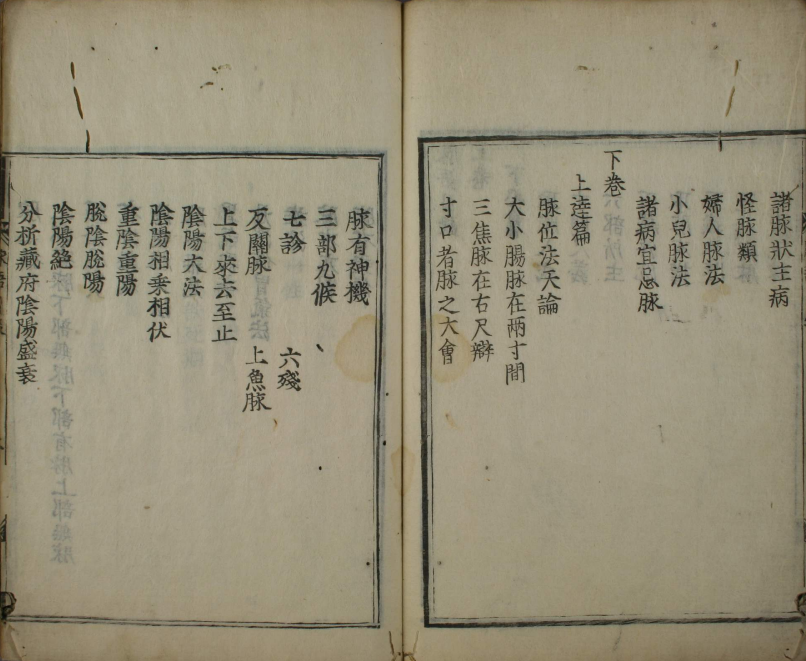 諸脉狀主病
怪脉類
婦人脉法
小兒脉法
諸病宜忌脉
下卷
上達篇
脉位法天論
大小腸脉在兩寸間
三焦脉在右尺辯
寸口者脉之大會
脉有神機
三部九候
七診 六殘
反關脉 上魚脉
上下來去至止
陰陽大法
陰陽相乗相伏
重陰重陽
脫陰脫陽
陰陽絶
分析藏府陰陽盛衰